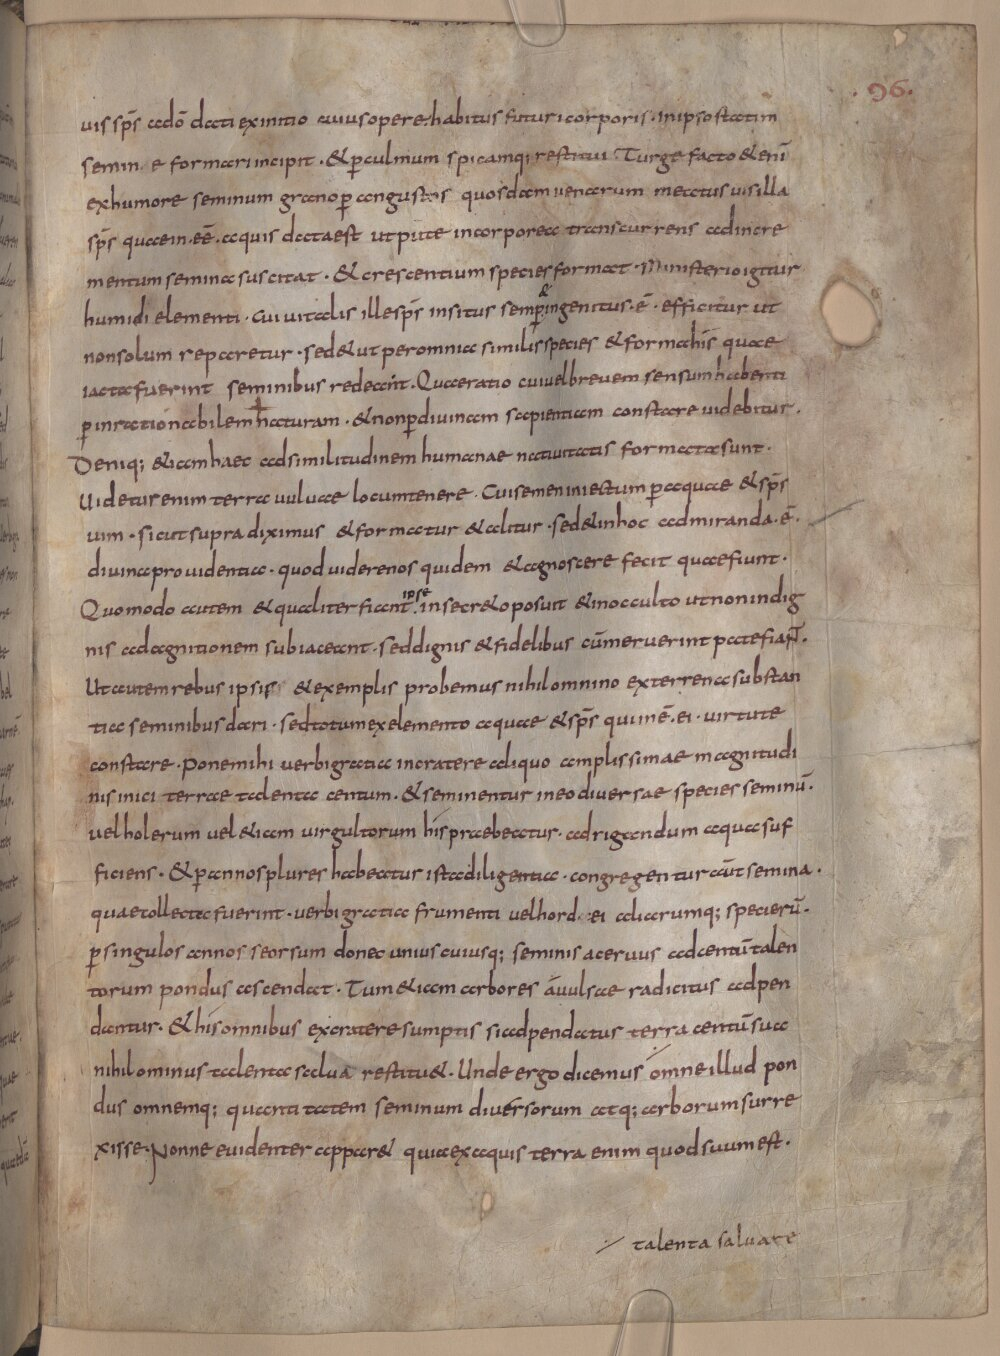 .96.
uis sp̄s adō dati exinitio cuius opere habitus futuri corporis · in ipso statim
semin e formari incipit · & p̱ culmum spicamq; restitui Turge facto & eni̅
ex humore seminum grano p̱ angustos quosdam uenarum meatus uis illa
sp̄s quae in · eē · aquis data est ut pute incorporea transcurrens ad incre
mentum semina suscitat · & crescentium species format · Ministerio igitur
humidi elementi · cui uitalis ille sp̄s insitus semp̱ & ingenitus · ē · efficitur ut
non solum reparetur · sed & ut per omnia similis species & forma his quae
iacta fuerint seminibus redeat · Quae ratio cui uel breuem sensum habenti
p̱ inrationabilem naturam · & non p̱ diuinam sapientiam constare uidebitur ·
Deniq; & iam haec ad similitudinem humanae natiuitatis formata sunt ·
Uidetur enim terra uuluae locum tenere · Cui semen iniectum p̱ aquae & sp̄s
uim · sicut supra diximus & formatur & alitur · sed & in hoc admiranda · ē ·
diuina prouidentia · quod uidere nos quidem & agnoscere fecit quae fiunt ·
Quomodo autem & qualiter fiant · ipse in secr&o posuit & in occulto ut non indig
nis ad agnitionem subiaceant · sed dignis & fidelibus cū meruerint patefiant ·
Ut autem rebus ipsis & exemplis probemus nihil omnino ex terrena substan
tia seminibus dari · sed totum ex elemento aquae & sp̄s qui in ē · ei · uirtute
constare · Pone mihi uerbi gratia in cratere aliquo amplissimae magnitudi
nis inici terrae talenta centum · & seminentur in eo diuersae species seminū ·
uel holerum uel & iam uirgultorum his praebeatur · ad rigandum aqua suf
ficiens · & p̱ annos plures habeatur ista diligentia · congregentur aūt semina ·
quae collecta fuerint · uerbi gratia frumenti uel hord ei aliarumq; specierū ·
p̱ singulos annos seorsum donec unius cuiusq; seminis aceruus ad centū talen
torum pondus ascendat · Tum & iam arbores auulsae radicitus adpen
dantur · & his omnibus ex cratere sumptis si adpendatus terra centū sua
nihilominus talenta salua restitu& · Unde ergo dicemus omne illud pon
dus omnemq; quantitatem seminum diuersorum atq; arborum surre
xisse · Nonne euidenter appar& quia ex aquis terra enim quod suum est ·
talenta saluate